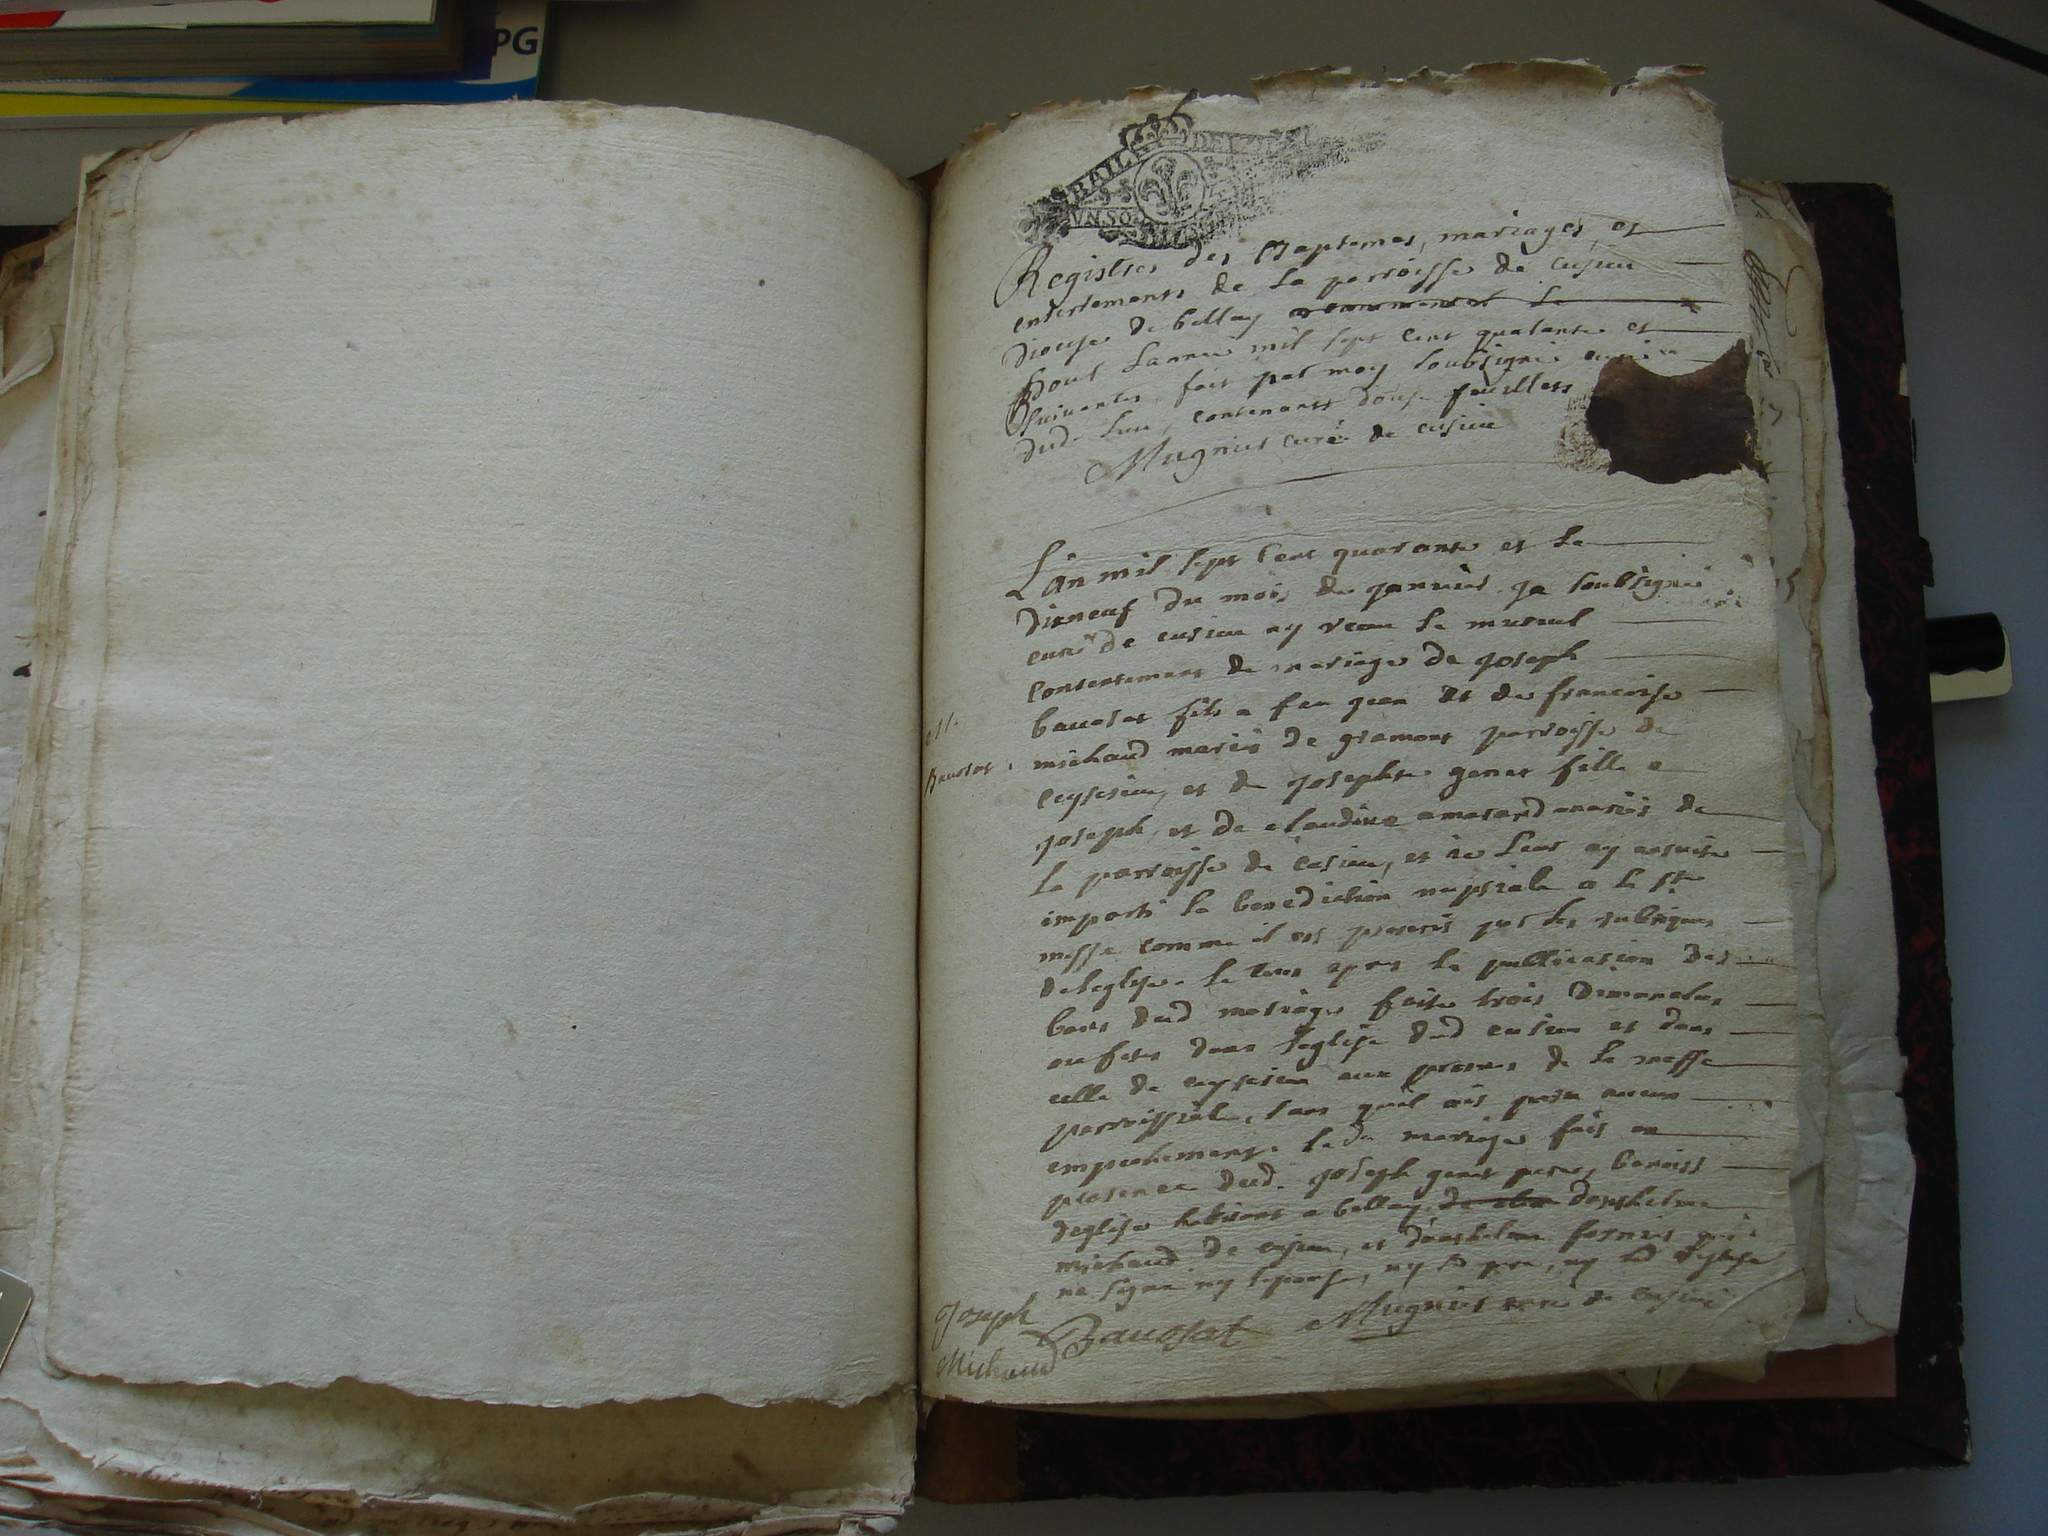 PG
BAIL DE
VN SO
Registres des Baptemes, mariages, et
enterrements de la parroisse de cusieu
Diocese de bellay
pour lannee mil sept cent quarante et
suivantes, fait par moy soubsigné curé
dud. lieu, contenants douze feuillets
Mugnier curé de cusieu
L'an mil sept cent quarante et le
dixneuf du mois de janvier je soubsigné
curé de cusieu ay receu le mutuel
consentement de mariage de joseph
baudet fils a feu jean et de francoise
michaud mariés de gramont parroisse de
ceyserieu, et de josephte genet fille a
joseph, et de claudine amarand mariés de
la parroisse de cusieu, et je leur ay ensuite
imparti la benediction nuptiale a la ste
messe comme il est prescrit par les rubriques
de leglise. le tout apres la publication des
bans dud mariage faite trois Dimanches
ou fetes dans leglise dud cusieu et dans
celle de ceyserieu aux prones de la messe
parroissiale, sans quil ait paru aucun
empechement. led. mariage fait en
presence dud. joseph genet pere, benoist
deglise habitant a bellay, danthelme
michaud de cusieu, et danthelme fornier qui
na signé ny lepouse, ny le pere, ny led deglise
Joseph
Michaud
Mugnier curé de cusieu